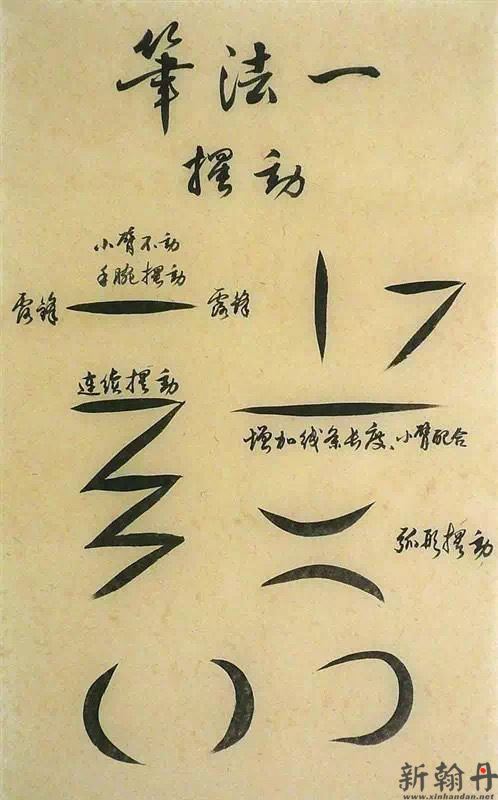 筆法一
擺動
小臂不动
手腕擺動
露锋
露锋
连续擺動
增加线条长度、小臂配合
弧形擺動
新翰丹
www.xinhandan.net